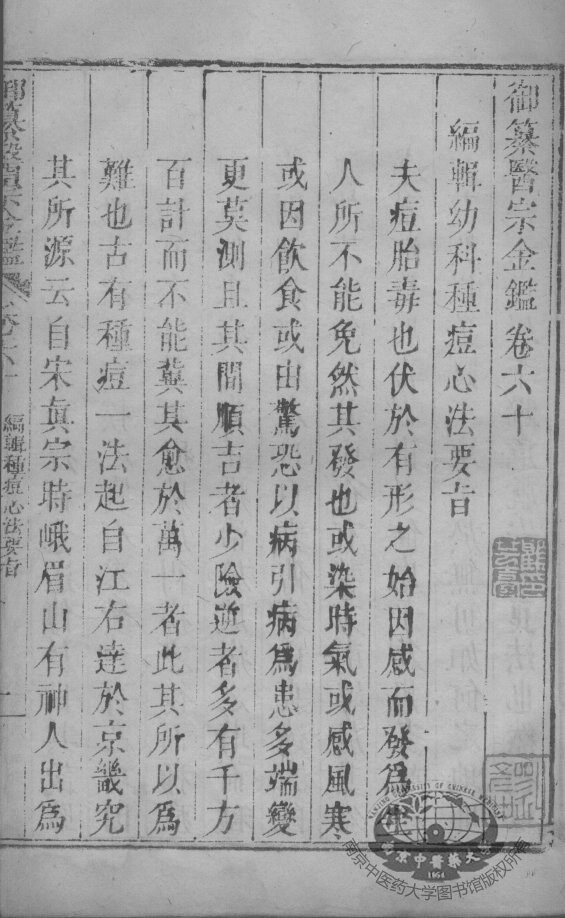 御纂醫宗金鑑卷六十
編輯幼科種痘心法要旨
夫痘胎毒也伏於有形之始因感而發為生
人所不能免然其發也或染時氣或感風寒
或因飲食或由驚恐以病引病為患多端變
更莫測且其間順吉者少險逆者多有千方
百計而不能冀其愈於萬一者此其所以為
難也古有種痘一法起自江右達於京畿究
其所源云自宋眞宗時峨眉山有神人出為
御纂醫宗金鑑
卷六十
編輯種痘心法要旨
一
NANJING UNIVERSITY OF CHINESE MEDICINE
南京中醫藥大
1954
南京中医药大学图书馆版权所有